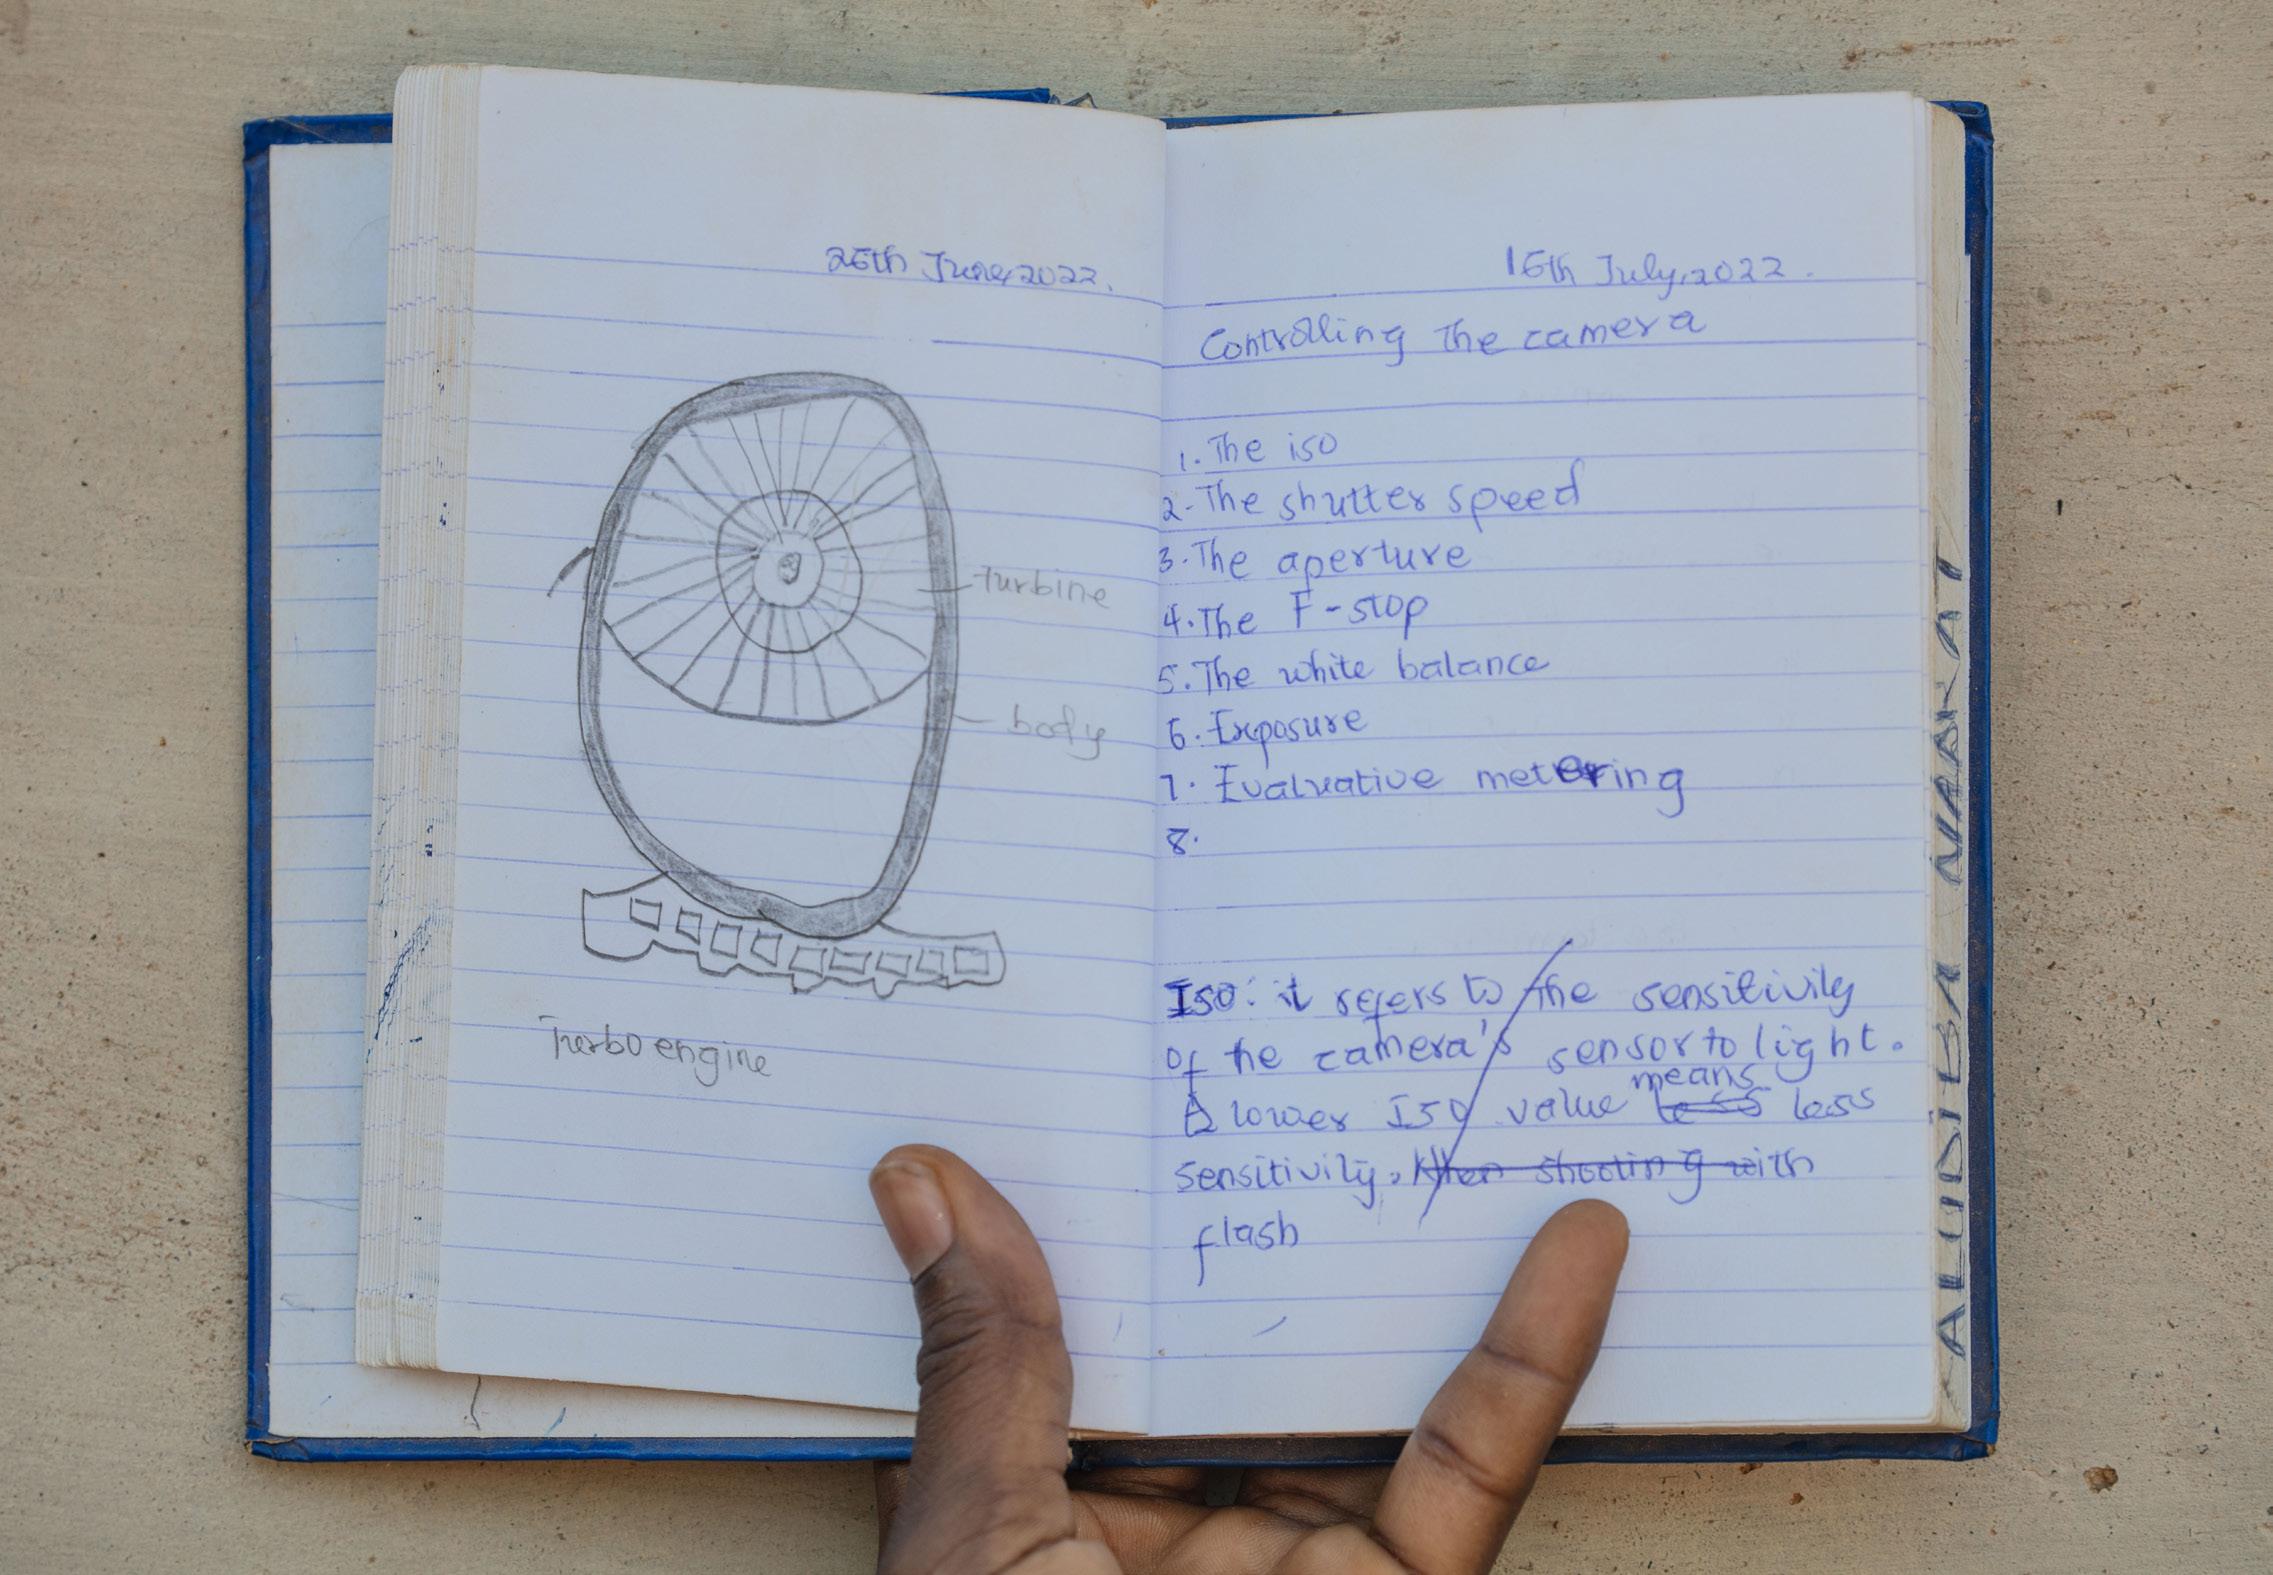 26th June, 2022.
turbine
body
Turbo engine
16th July, 2022.
Controlling The camera
1. The iso
2. The shutter speed
3. The aperture
4. The F-stop
5. The white balance
6. Exposure
7. Evaluative metering
8.
ISO: it refers to the sensitivity
Of the camera's sensor to light.
means
A lower ISO value less less
sensitivity. When shooting with
flash
ALUDIBA NABKAT